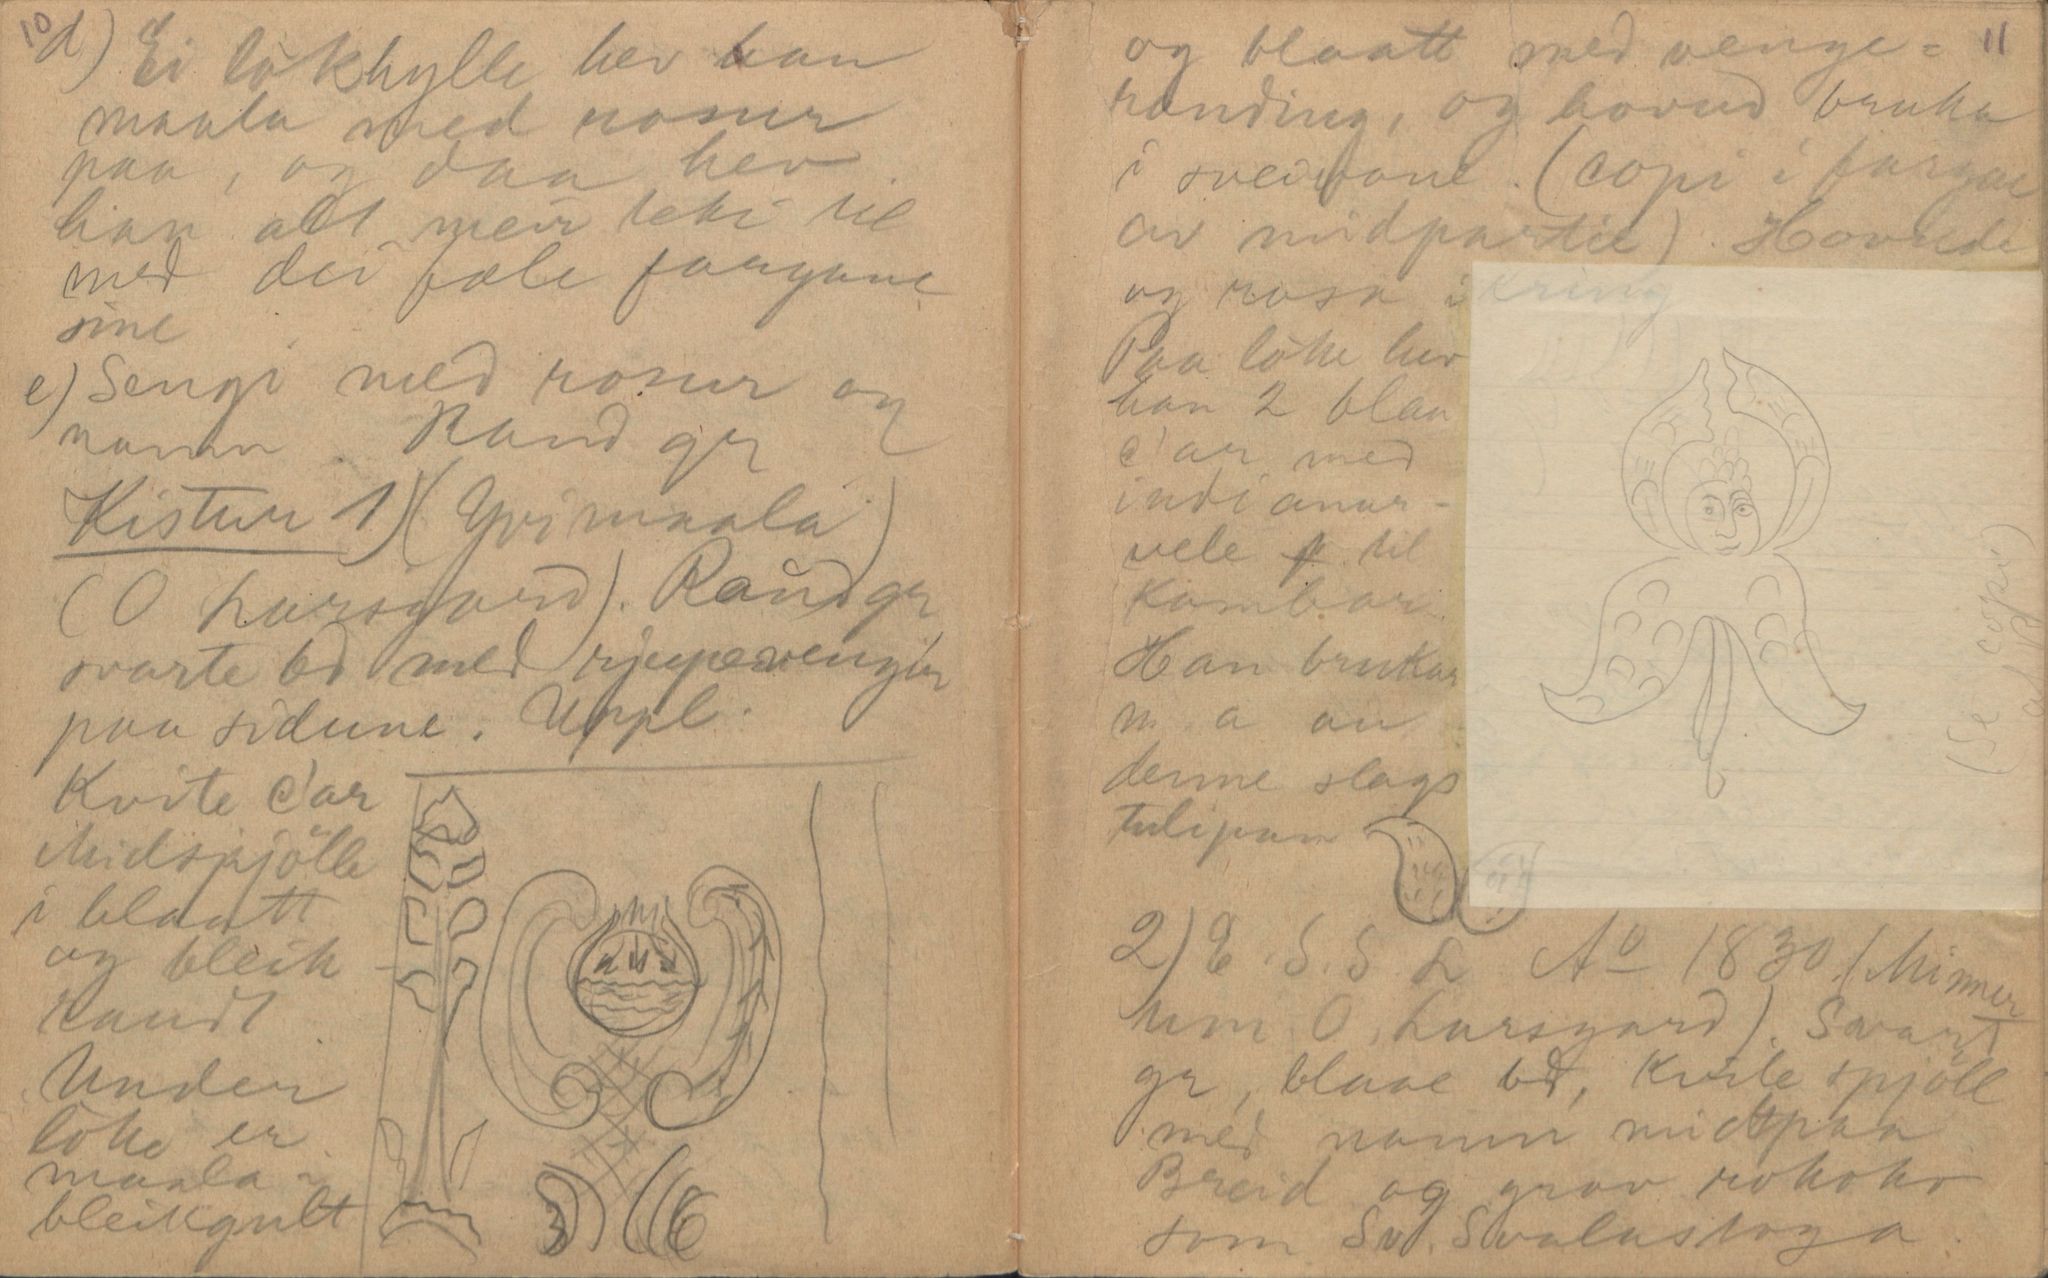 10
d) Ei lökhylle hev han
maala med rosur
paa, og daa hev
han alt meir teki til
med dei fæle fargane
sine
e) Sengi med rosur og
namn. Raud gr
Kistur 1) (Yvimaala)
(O Larsgard). Raud gr
svarte bd med rjupevengjir
paa sidune. Uppl.
Kvite c'ar
Midspjölle
i blaatt
og bleik
raudt
Under
löke er
maala i
bleikgult
11
og blaatt med venge=
randing, og hovud bruka
i sveivane. (copi i fargar
av midpartie). Hovude
og rosa ikring
Paa löke hev
han 2 blaa
c'ar med
indianar-
vele til
Kambar.
Han brukar
m a au
denne slags
tulipan
(Se copi)
2) E. S. S. L Ao 1830. (Minner
um O. Larsgard). Svart
gr, blaae bd, Kvite spjöll
med namn midtpaa
Breid og grov rokoko
som Sv. Svalastoga